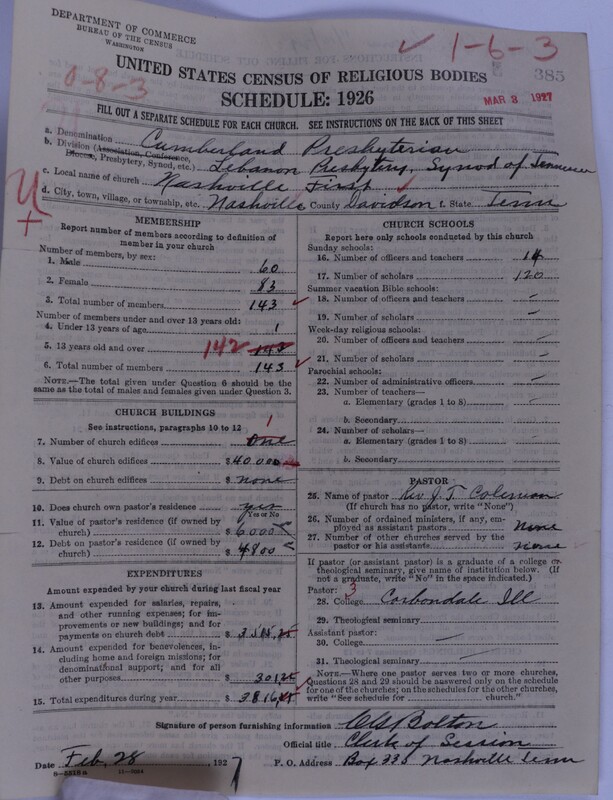 DEPARTMENT OF COMMERCE
BUREAU OF THE CENSUS
WASHINGTON
1-6-3
0-8-3
385
UNITED STATES CENSUS OF RELIGIOUS BODIES
SCHEDULE: 1926
MAR 3 1927
FILL OUT A SEPARATE SCHEDULE FOR EACH CHURCH. SEE INSTRUCTIONS ON THE BACK OF THIS SHEET
a. Denomination Cumberland Presbyterian
b. Division (Association, Conference, Diocese, Presbytery, Synod, etc.) Lebanon Presbytery, Synod of Tennessee
c. Local name of church Nashville First
d. City, town, village, or township, etc. Nashville County Davidson t. State Tenn
MEMBERSHIP
Report number of members according to definition of
member in your church
Number of members, by sex:
1. Male 60
2. Female 83
3. Total number of members 143
Number of members under and over 13 years old:
4. Under 13 years of age 1
5. 13 years old and over 142 143
6. Total number of members 143
NOTE.—The total given under Question 6 should be
same as the total of males and females given under Question 3.
CHURCH BUILDINGS
See instructions, paragraphs 10 to 12
7. Number of church edifices One 1
8. Value of church edifices $40.000
9. Debt on church edifices $ none
10. Does church own pastor's residence yes
Yes or No
11. Value of pastor's residence (if owned by
church) $ 6000
12. Debt on pastor's residence (if owned by
church) $ 4800
EXPENDITURES
Amount expended by your church during last fiscal year
13. Amount expended for salaries, repairs,
and other running expenses; for improvements
or new buildings; and for
payments on church debt $
14. Amount expended for benevolences, including
home and foreign missions; for
denominational support; and for all
other purposes $ 301
15. Total expenditures during year $ 3816
CHURCH SCHOOLS
Report here only schools conducted by this church
Sunday schools:
16. Number of officers and teachers 14
17. Number of scholars 120
Summer vacation Bible schools:
18. Number of officers and teachers –
19. Number of scholars –
Week-day religious schools:
20. Number of officers and teachers –
21. Number of scholars –
Parochial schools:
22. Number of administrative officers –
23. Number of teachers—
a. Elementary (grades 1 to 8)
b. Secondary
24. Number of scholars—
a. Elementary (grades 1 to 8)
b. Secondary
PASTOR
25. Name of pastor Rev J. T. Coleman
(If church has no pastor, write "None")
26. Number of ordained ministers, if any, employed
as assistant pastors None
27. Number of other churches served by the
pastor or his assistants none
If pastor (or assistant pastor) is a graduate of a college or
theological seminary, give name of institution below. (If
not a graduate, write "No" in the space indicated.)
Pastor: 3
28. College Carbondale Ill
29. Theological seminary
Assistant pastor:
30. College –
31. Theological seminary –
NOTE.—Where one pastor serves two or more churches,
Questions 28 and 29 should be answered only on the schedule
for one of the churches; on the schedules for the other churches,
write "See schedule for church."
Signature of person furnishing information Bolton
Official title Clerk of Session
Date Feb, 28 1927
P. O. Address Box 335 Nashville Tenn